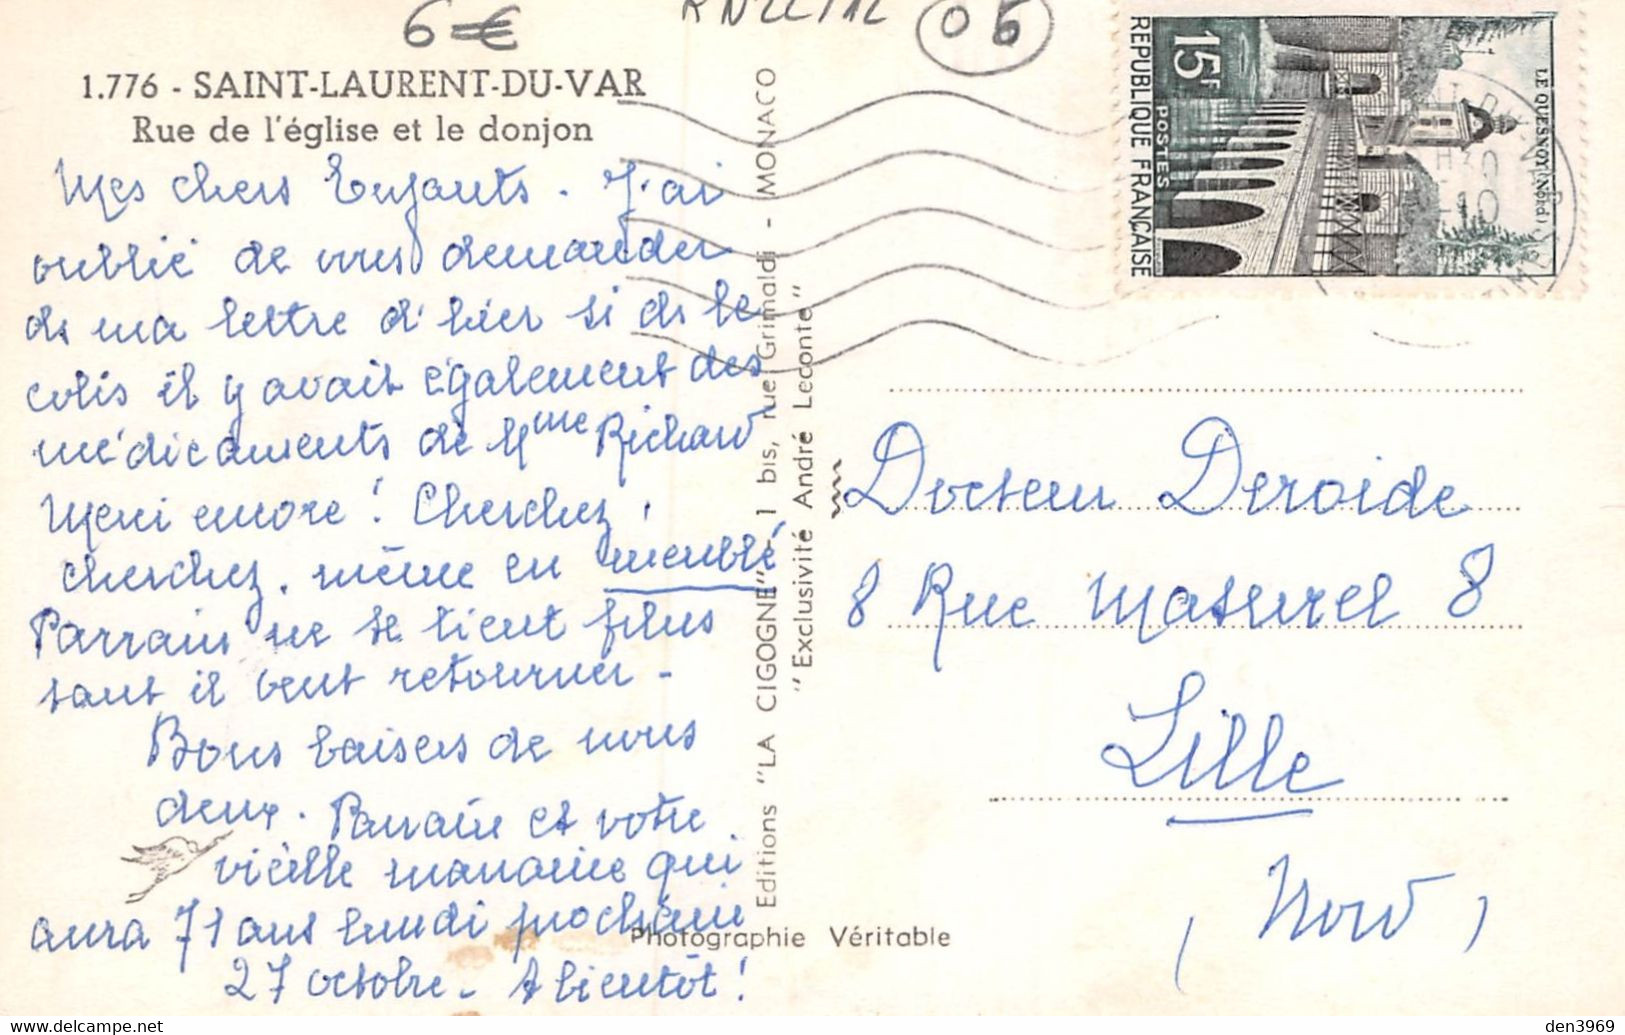 6 €
06
1.776 - SAINT-LAURENT-DU-VAR
Rue de l'église et le donjon
Mes chers Enfants. J'ai
oublié de vous demander
ds ma lettre d'hier si ds le
colis il y avait également des
médicaments de Mme Richard
Merci encore ! Cherchez,
cherchez, même en meublé
Parrain ne se tient plus
tant il veut retourner -
Bons baisers de nous
deux. Parrain et votre
vieille marraine qui
aura 71 ans lundi prochain
27 octobre - A bientôt !
Editions "LA CIGOGNE", 1 bis, rue Grimaldi - MONACO
"Exclusivité André Leconte"
Photographie Véritable
REPUBLIQUE FRANÇAISE
15F
POSTES
LE QUESNOY (Nord)
Docteur Deroide
8 Rue Masurel 8
Lille
(Nord)
den3969
https://www.delcampe.net